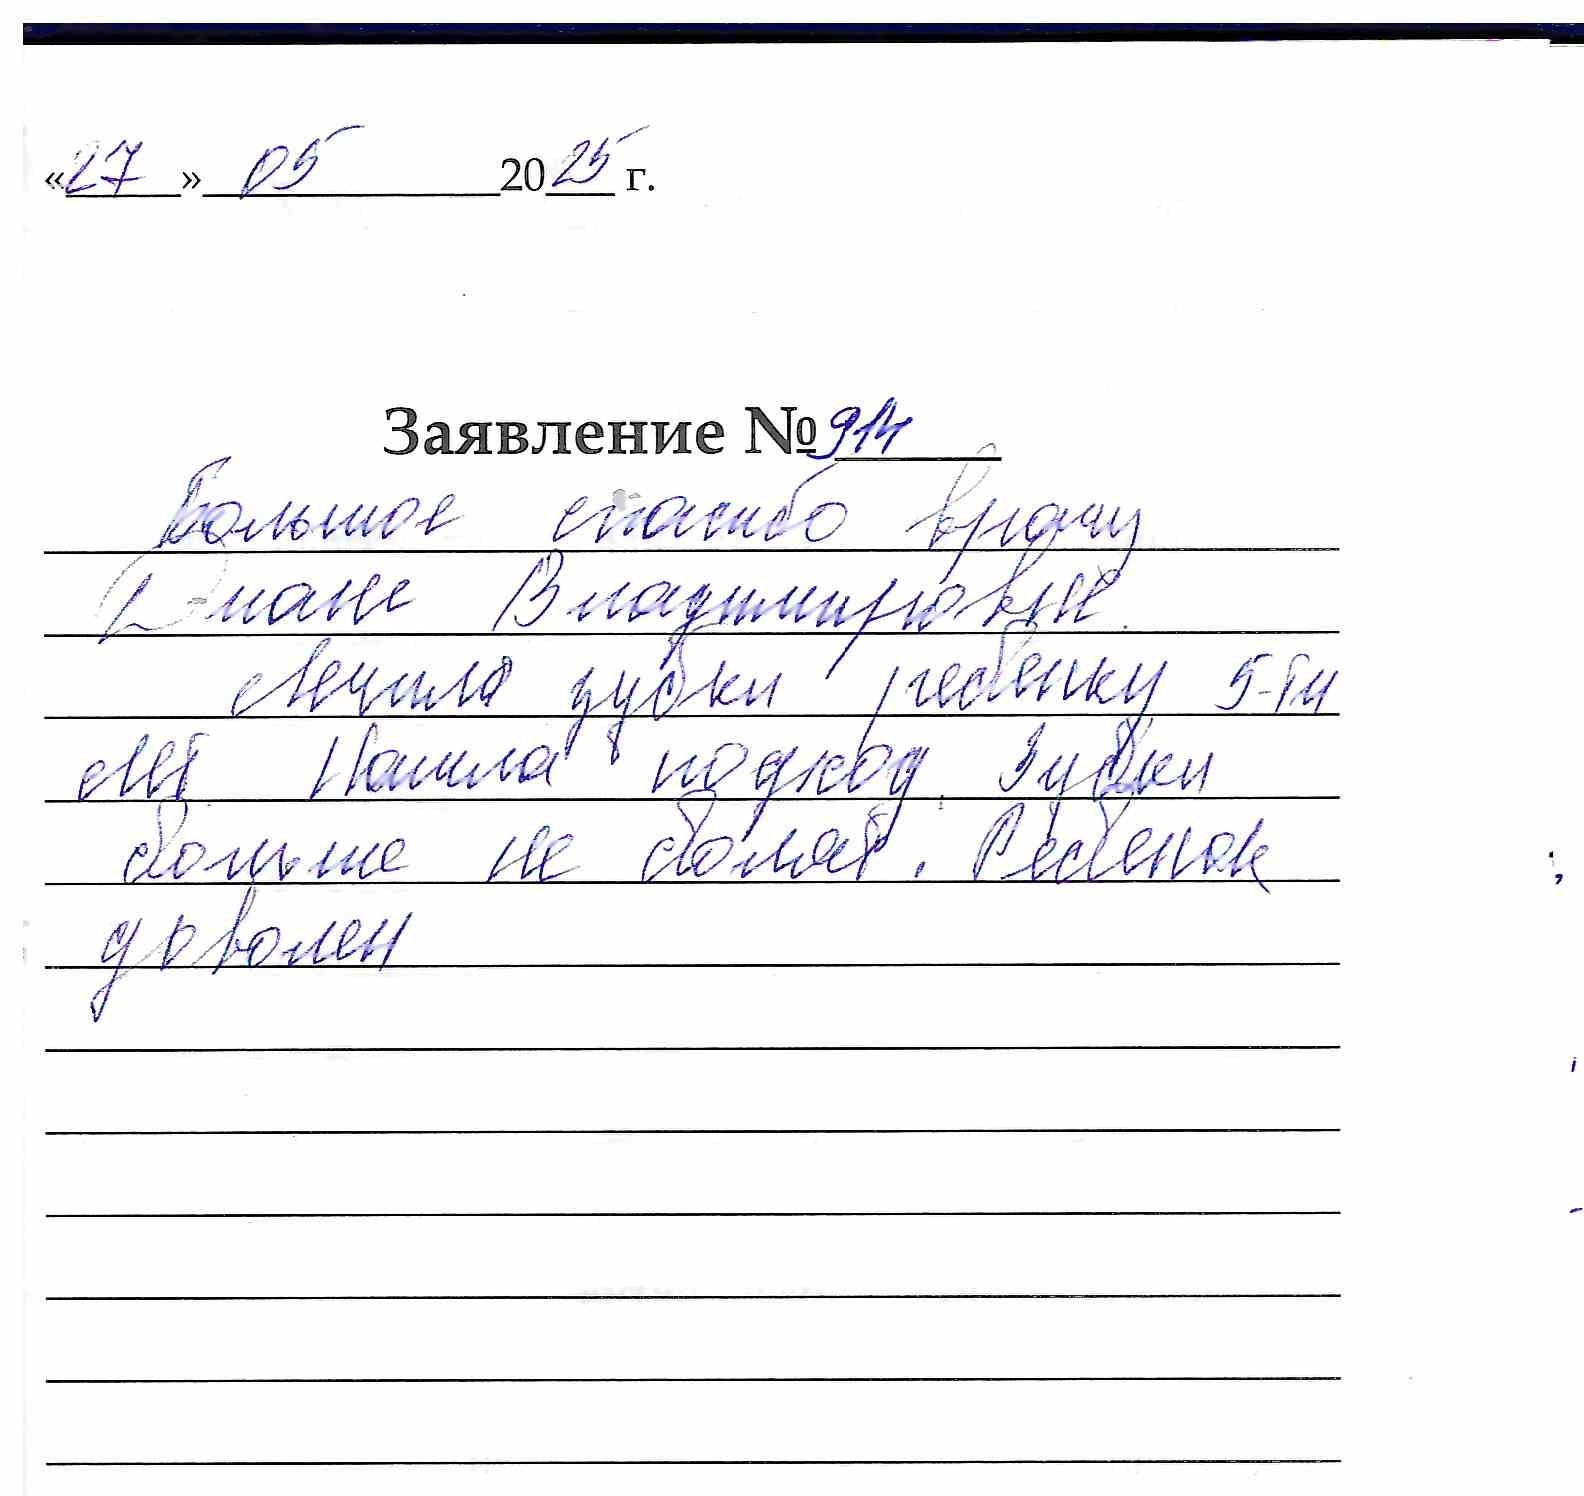 «27» 05 2025 г.
Заявление № 914
Большое спасибо врачу
Диане Владимировне.
Лечила зубки ребенку 5-ти
лет Нашла подход. Зубки
больше не болят. Ребенок
доволен